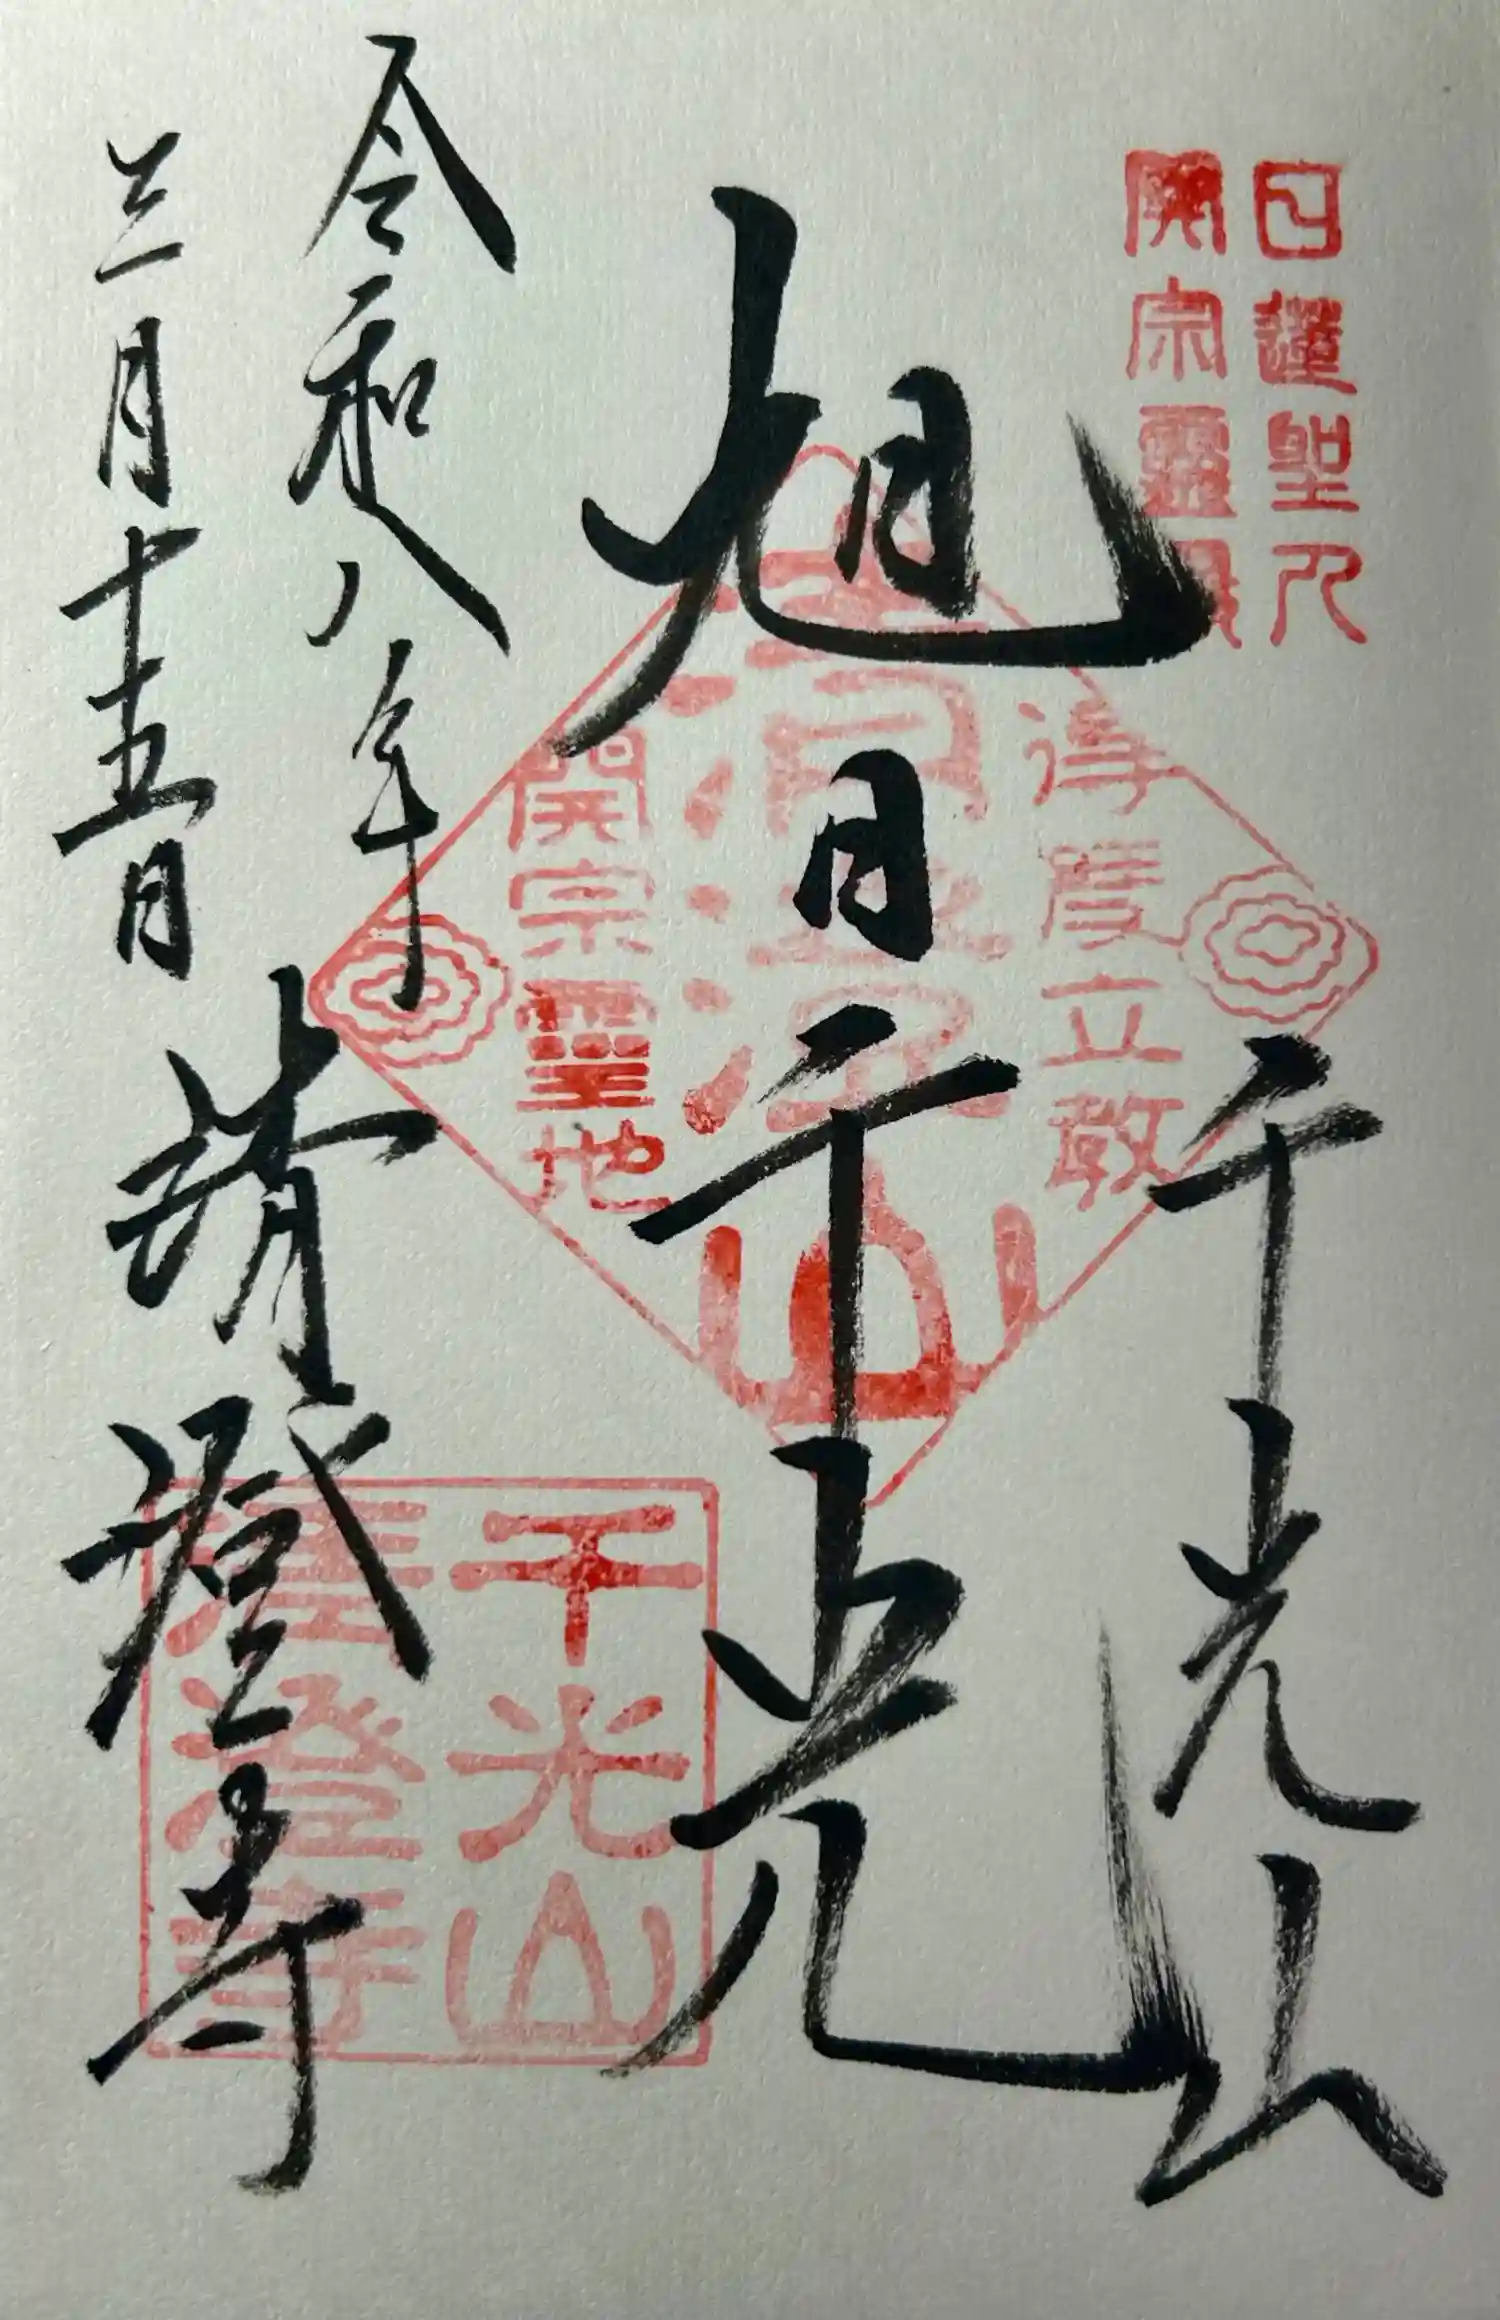 日蓮聖人
開宗靈
千光山
旭日千光
得度立教
開宗靈地
令和八年
三月十五日
清澄寺
千光山
清澄寺